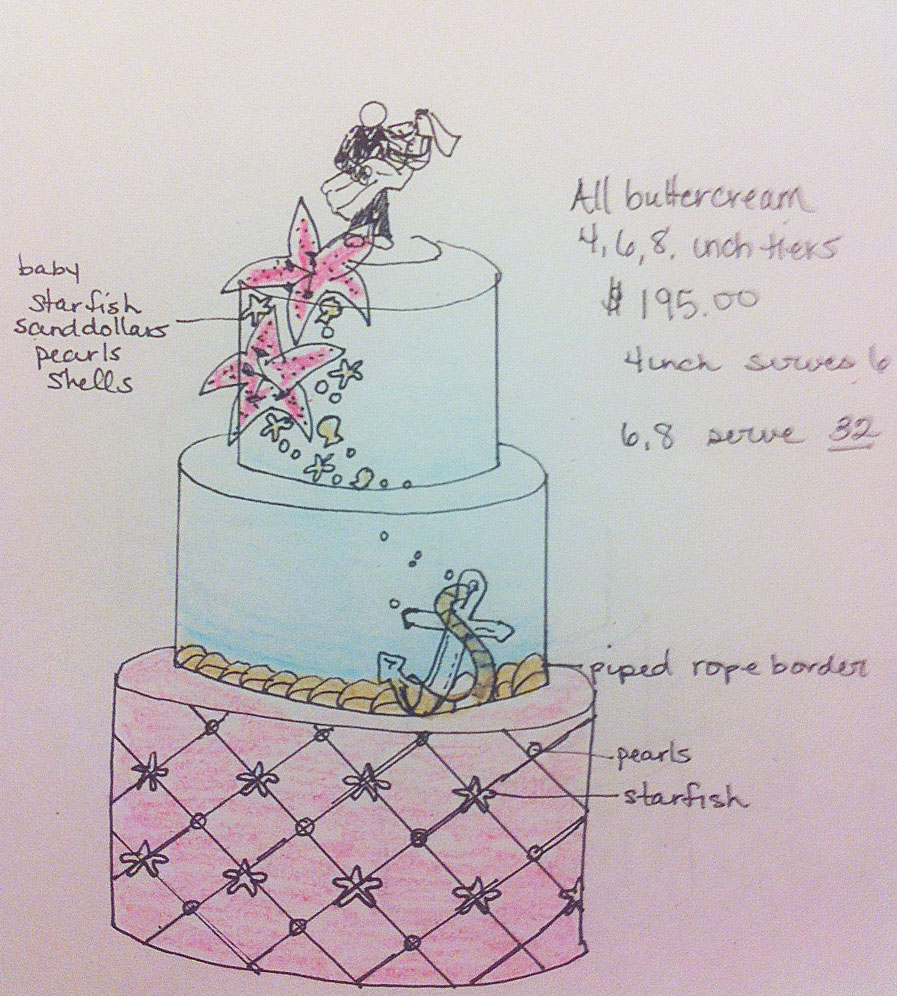 All buttercream
4,6,8. inch tiers
$195.00
4 inch serves 6
6,8 serve 32
baby
starfish
sanddollars
pearls
shells
piped rope border
pearls
starfish